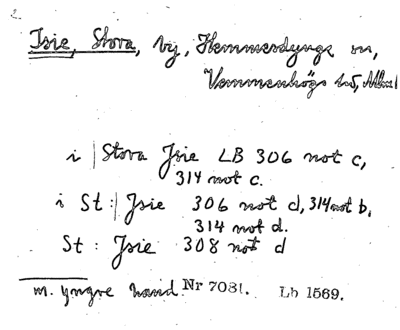 Isie, Stora, by, Hemmesdynge sn,
Vemmenhögs hd,
i | Stora Jsie LB 306 not c,
314 not c.
i St:| Jsie 306 not d, 314 not b,
314 not d.
St: Jsie 308 not d
m. yngre hand. Nr 7081. Lb 1569.